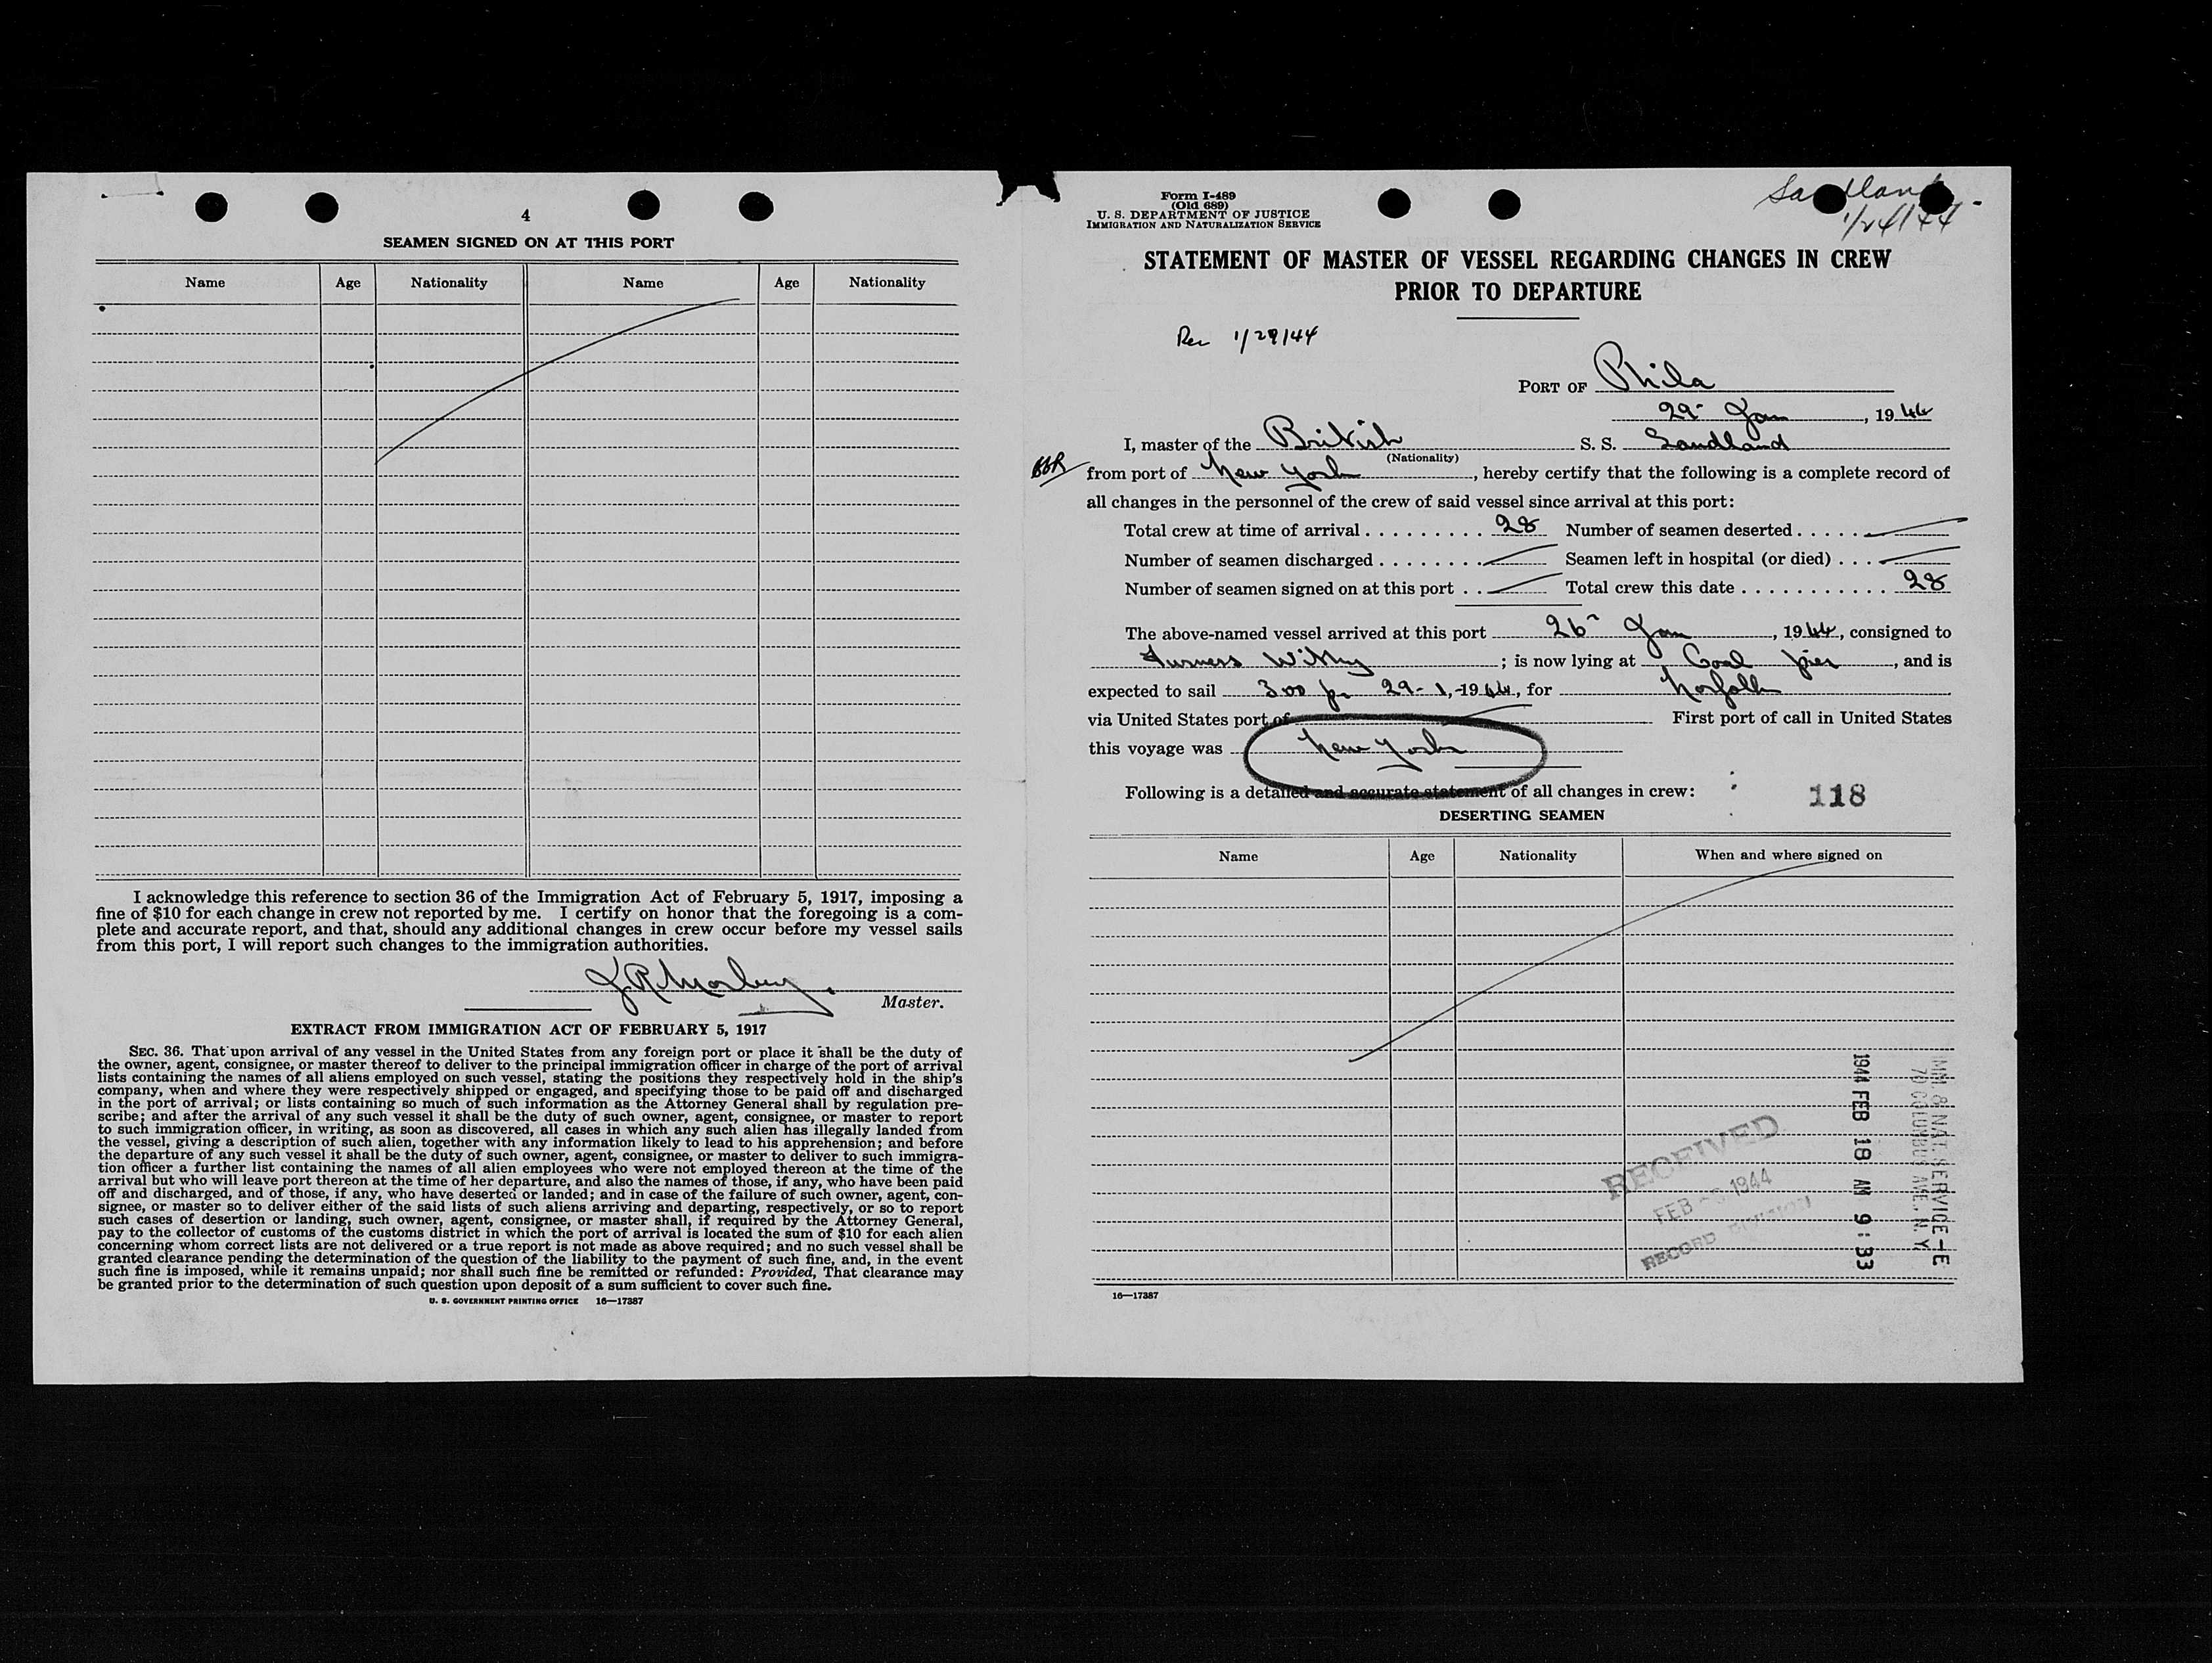 4
SEAMEN SIGNED ON AT THIS PORT
Name Age Nationality Name Age Nationality
I acknowledge this reference to section 36 of the Immigration Act of February 5, 1917, imposing a
fine of $10 for each change in crew not reported by me. I certify on honor that the foregoing is a com-
plete and accurate report, and that, should any additional changes in crew occur before my vessel sails
from this port, I will report such changes to the immigration authorities.
Master.
EXTRACT FROM IMMIGRATION ACT OF FEBRUARY 5, 1917
SEC. 36. That upon arrival of any vessel in the United States from any foreign port or place it shall be the duty of
the owner, agent, consignee, or master thereof to deliver to the principal immigration officer in charge of the port of arrival
lists containing the names of all aliens employed on such vessel, stating the positions they respectively hold in the ship's
company, when and where they were respectively shipped or engaged, and specifying those to be paid off and discharged
in the port of arrival; or lists containing so much of such information as the Attorney General shall by regulation pre-
scribe; and after the arrival of any such vessel it shall be the duty of such owner, agent, consignee, or master to report
to such immigration officer, in writing, as soon as discovered, all cases in which any such alien has illegally landed from
the vessel, giving a description of such alien, together with any information likely to lead to his apprehension; and before
the departure of any such vessel it shall be the duty of such owner, agent, consignee, or master to deliver to such immigra-
tion officer a further list containing the names of all alien employees who were not employed thereon at the time of the
arrival but who will leave port thereon at the time of her departure, and also the names of those, if any, who have been paid
off and discharged, and of those, if any, who have deserted or landed; and in case of the failure of such owner, agent, con-
signee, or master so to deliver either of the said lists of such aliens arriving and departing, respectively, or so to report
such cases of desertion or landing, such owner, agent, consignee, or master shall, if required by the Attorney General,
pay to the collector of customs of the customs district in which the port of arrival is located the sum of $10 for each alien
concerning whom correct lists are not delivered or a true report is not made as above required; and no such vessel shall be
granted clearance pending the determination of the question of the liability to the payment of such fine, and, in the event
such fine is imposed, while it remains unpaid; nor shall such fine be remitted or refunded: Provided, That clearance may
be granted prior to the determination of such question upon deposit of a sum sufficient to cover such fine.
U. S. GOVERNMENT PRINTING OFFICE 16—17387
Form I-489
(Old 689)
U. S. DEPARTMENT OF JUSTICE
IMMIGRATION AND NATURALIZATION SERVICE
STATEMENT OF MASTER OF VESSEL REGARDING CHANGES IN CREW
PRIOR TO DEPARTURE
Rec 1/29/44
PORT OF Phila
29 Jan, 1944
I, master of the British S. S. Sandland
(Nationality)
from port of New York, hereby certify that the following is a complete record of
all changes in the personnel of the crew of said vessel since arrival at this port:
Total crew at time of arrival 28 Number of seamen deserted
Number of seamen discharged Seamen left in hospital (or died)
Number of seamen signed on at this port Total crew this date 28
The above-named vessel arrived at this port 26 Jan, 1944, consigned to
Furness Withy; is now lying at Coal pier, and is
expected to sail 3 00 pm 29-1,-1944, for Norfolk
via United States port of First port of call in United States
this voyage was New York
Following is a detailed and accurate statement of all changes in crew:
118
DESERTING SEAMEN
Name Age Nationality When and where signed on
RECEIVED
FEB 1944
RECORD DIVISION
1944 FEB 18 AM 9:33
IMM & NAT. SERVICE-E
70 COLUMBUS AVE. N.Y.
16—17387